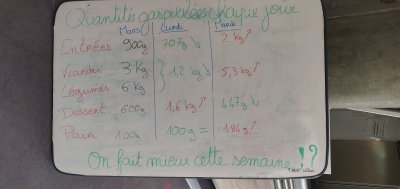 Quantités gaspillées chaque jour
Mars Lundi Mardi
Entrées 900g 707g ↘ 2 kg ↗
Viandes 3 Kg } 1,2 kg ↘ 5,3 kg ↗
Légumes 6 Kg
Dessert 600g 1,6 kg ↗ 467g ↘
Pain 100g 100g = 184g ↗
On fait mieux cette semaine !?